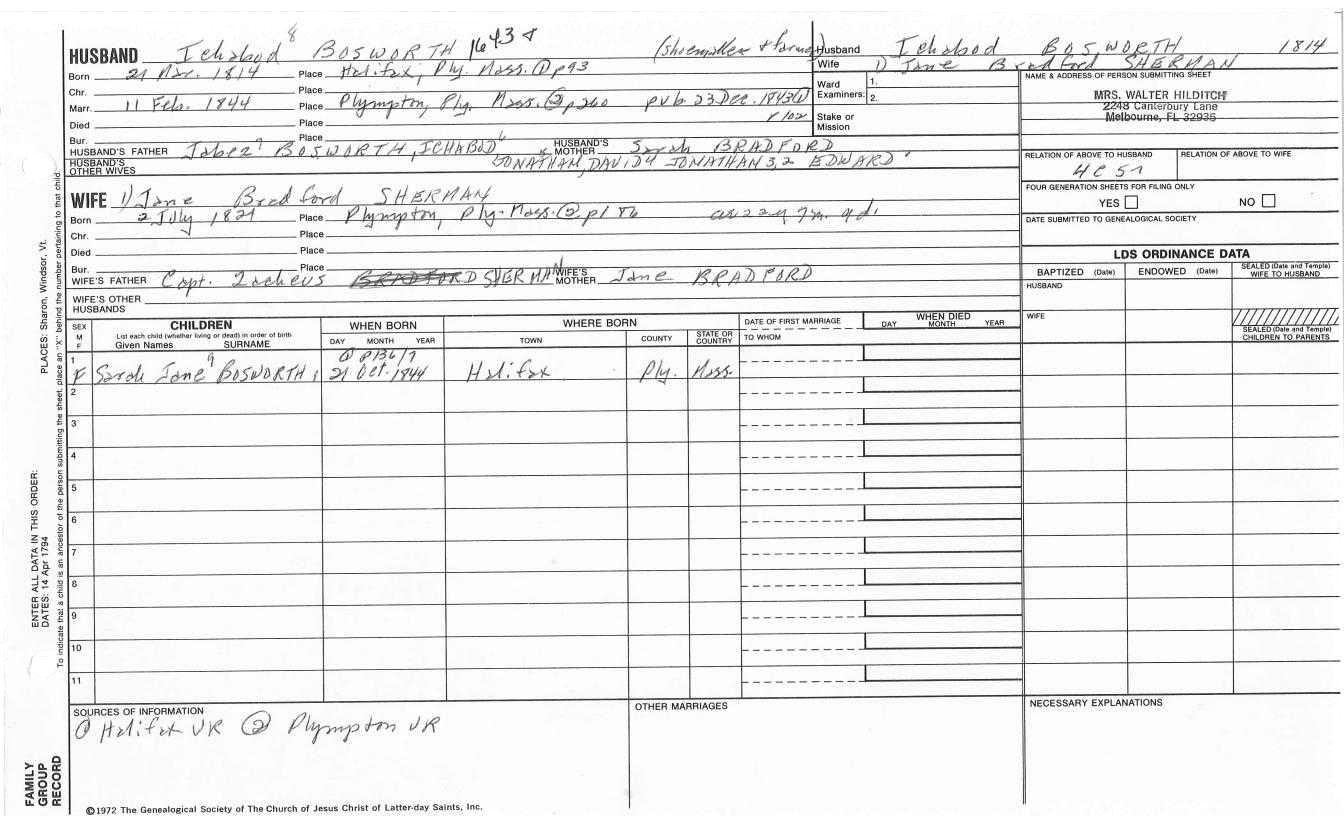 HUSBAND Ichabod 8 BOSWORTH 1643 8 (shoemaker & farmer)
Born 21 Mar. 1814 Place Halifax, Ply. Mass. ① p93
Chr. Place
Marr. 11 Feb. 1844 Place Plympton, Ply. Mass. ② p260 pub. 23 Dec. 1843 ①
p 102
Died Place
Bur. Place
HUSBAND'S FATHER Jabez 7 BOSWORTH, ICHABOD 6 HUSBAND'S MOTHER Sarah BRADFORD
HUSBAND'S OTHER WIVES JONATHAN, DAVID 4 JONATHAN 3,2 EDWARD 1
Husband Ichabod BOSWORTH 1814
Wife 1) Jane Bradford SHERMAN
Ward Examiners: 1.
2.
Stake or Mission
NAME & ADDRESS OF PERSON SUBMITTING SHEET
MRS. WALTER HILDITCH
2248 Canterbury Lane
Melbourne, FL 32935
RELATION OF ABOVE TO HUSBAND RELATION OF ABOVE TO WIFE
4C 5r
FOUR GENERATION SHEETS FOR FILING ONLY
YES NO
DATE SUBMITTED TO GENEALOGICAL SOCIETY
WIFE 1) Jane Bradford SHERMAN
Born 2 July 1821 Place Plympton, Ply. Mass. ② p186 22y 7m 9d.
Chr. Place
Died Place
Bur. Place
WIFE'S FATHER Capt. Zacheus BRADFORD SHERMAN WIFE'S MOTHER Jane BRADFORD
WIFE'S OTHER HUSBANDS
LDS ORDINANCE DATA
BAPTIZED (Date) ENDOWED (Date) SEALED (Date and Temple) WIFE TO HUSBAND
HUSBAND
WIFE
SEALED (Date and Temple) CHILDREN TO PARENTS
SEX M F
CHILDREN
List each child (whether living or dead) in order of birth
Given Names SURNAME
WHEN BORN
DAY MONTH YEAR
WHERE BORN
TOWN COUNTY STATE OR COUNTRY
DATE OF FIRST MARRIAGE
TO WHOM
WHEN DIED
DAY MONTH YEAR
1 ① p136/7
F Sarah Jane 9 BOSWORTH 21 Oct. 1844 Halifax Ply. Mass.
2
3
4
5
6
7
8
9
10
11
SOURCES OF INFORMATION
① Halifax VR ② Plympton VR
OTHER MARRIAGES
NECESSARY EXPLANATIONS
©1972 The Genealogical Society of The Church of Jesus Christ of Latter-day Saints, Inc.
FAMILY GROUP RECORD
ENTER ALL DATA IN THIS ORDER:
DATES: 14 Apr 1794
PLACES: Sharon, Windsor, Vt.
To indicate that a child is an ancestor of the person submitting the sheet, place an "X" behind the number pertaining to that child.